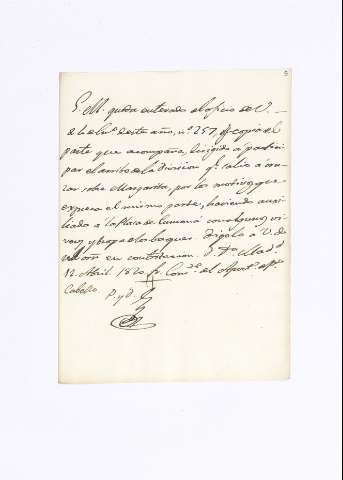 S. M. queda enterado del oficio de V.
de la de este año, n.º 257, y copia del
parte que acompaña, dirigido a partici-
par el arribo de la Division qe. salio a
sobre Margarita, por los motivos que
expresa el mismo parte, haviendo auxi-
liado a la Plaza de Cumaná con algunos vi-
veres y tropa de los buques. Digolo a V. de
Rl. orn en contestacion. D. Ma. Madd.
12. Abril 1820. Sr. Comte. el Apost.º de Pto.
Cabello. P. y D.